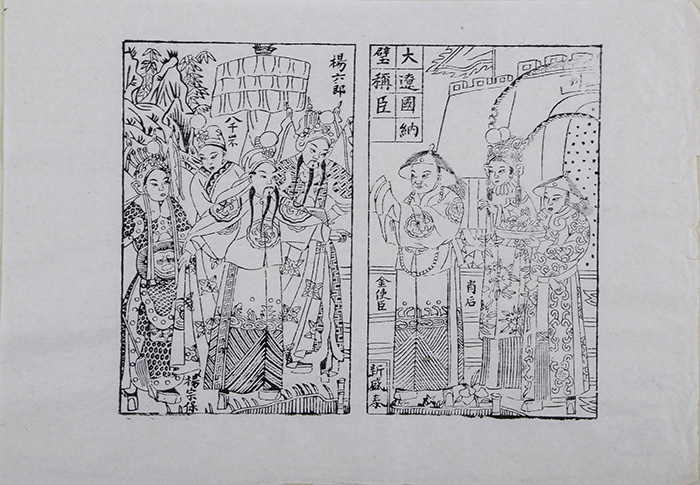 大遼國納
璧稱臣
肖后
金使臣
新盛泰
楊六郎
八千岁
楊宗保